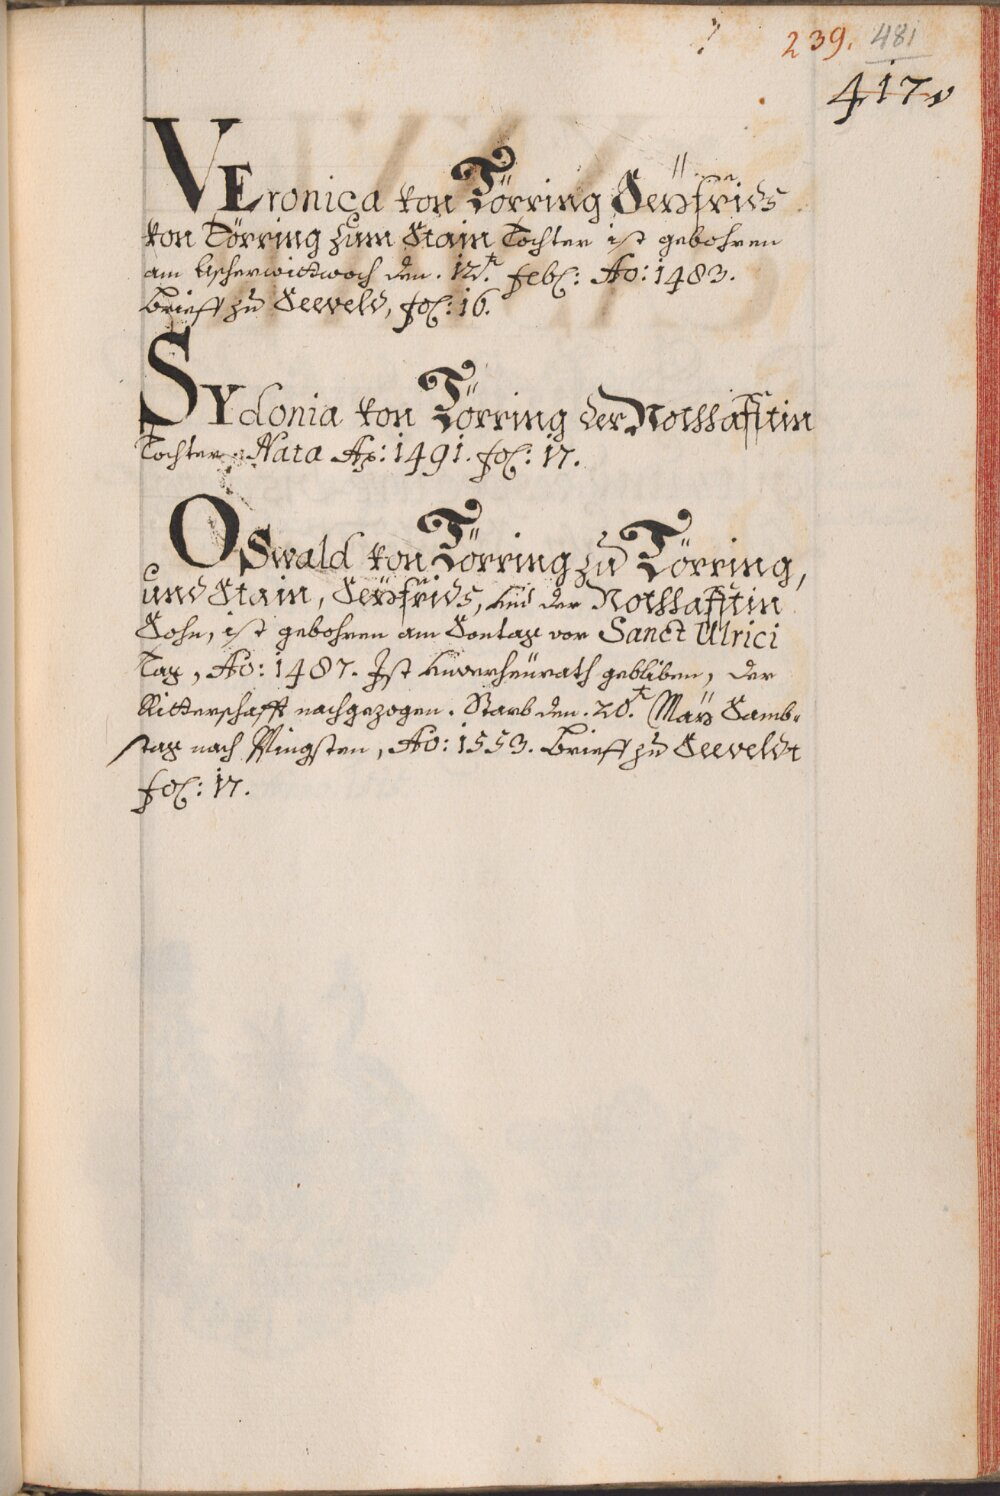 239. 481
417
VEronica von Törring Seyfrids
von Törring zum Stain Tochter ist gebohren
am Aschermittwoch den. 12.t Feb: Ao: 1483.
Brieff zu Seeveld, fol: 16.
SYdonia von Törring der Nothhafftin
Tochter. Nata Ao: 1491. fol: 17.
OSwald von Törring zu Törring,
und Stain, Seyfrids, und der Nothhafftin
Sohn, ist gebohren am Sontag vor Sanct Ulrici
Tag, Ao: 1487. Ist unverheürath gebliben, der
Ritterschafft nachgezogen. Starb den. 20.t May Samb-
stag nach Pfingsten, Ao: 1553. Brieff zu Seeveldt
fol: 17.